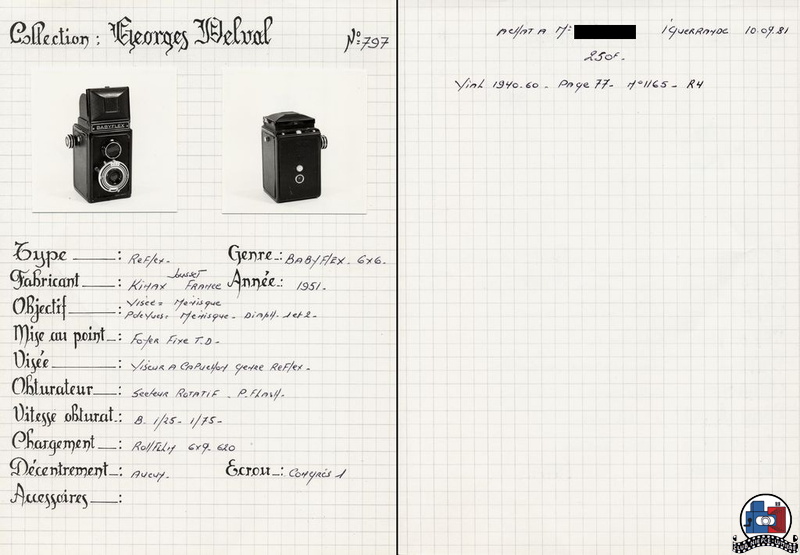 Collection : Georges Delval
No: 797
BABYFLEX
Type : Reflex. Genre : BABYFLEX. 6x6.
Jousset
Fabricant : Kinax FRANCE Année : 1951.
Objectif : Visée = Ménisque
Pdevues = Ménisque. Diaph. 1et2.
Mise au point : Foyer Fixe T.D.
Visée : Viseur A CAPuchon genre Reflex.
Obturateur : Secteur ROTATIF _ P.Flash.
Vitesse obturat. : B. 1/25. 1/75.
Chargement : RollFilm 6x9. 620
Décentrement : Aucun. Ecrou : Congrès 1
Accessoires :
Achat A Mr GUERRANDE 10.09.81
250F.
Vial 1940.60. Page 77. n°1165. R4